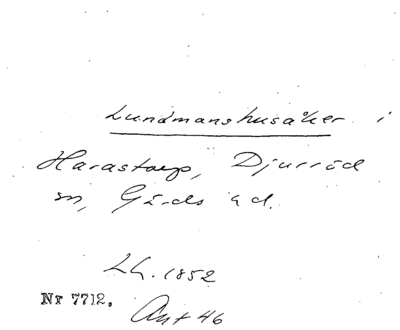 Lundmanshusåker i
Harastorp, Djurröd
sn, Gärds hd.
Lh. 1852
Nr 7712.
Ant 46